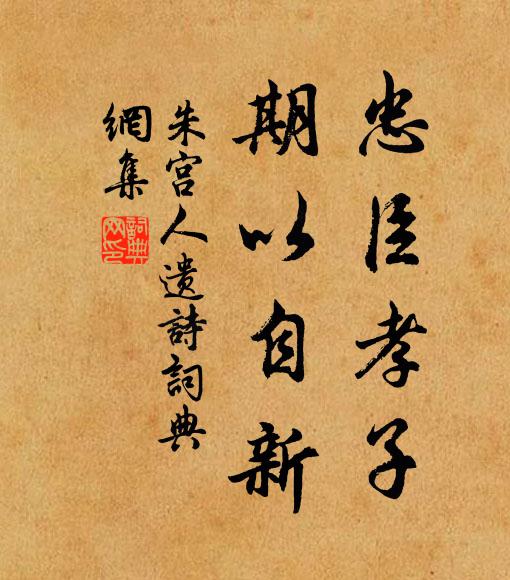 忠臣孝子
期以自新
朱宫人遗詩詞典
網集
詞典网印